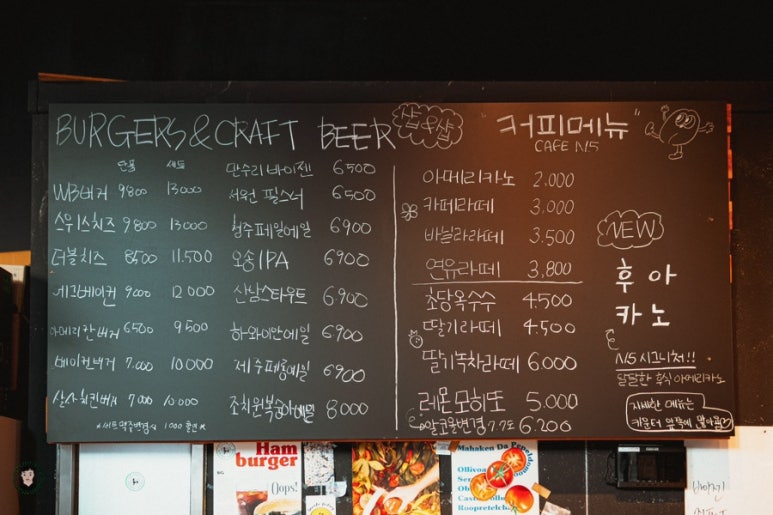 BURGERS & CRAFT BEER
단품 세트
WB버거 9800 13000
스위스치즈 9800 13000
더블치즈 8500 11.500
에그베이컨 9000 12000
아메리칸버거 6500 9500
베이컨버거 7.000 10.000
살사치킨버거 7.000 10.000
만수리 바이젠 6500
서원 필스너 6500
청주페일에일 6900
오송IPA 6900
산남스타우트 6,900
하와이안에일 6900
제주페롱에일 6900
조치원복숭아에일 8000
샵&샵
커피메뉴
CAFE N15
아메리카노 2.000
카페라떼 3,000
바닐라라떼 3.500
연유라떼 3,800
초당옥수수 4.500
딸기라떼 4.500
딸기녹차라떼 6.000
레몬모히또 5.000
알코올변경 7.7도 6.200
NEW
후아
카노
N15 시그니처!!
달달한 후식 아메리카노
자세한 메뉴는
카운터 앞쪽에 많아욤
Ham
burger
Oops!
Mahaken Da Pepeldomoon